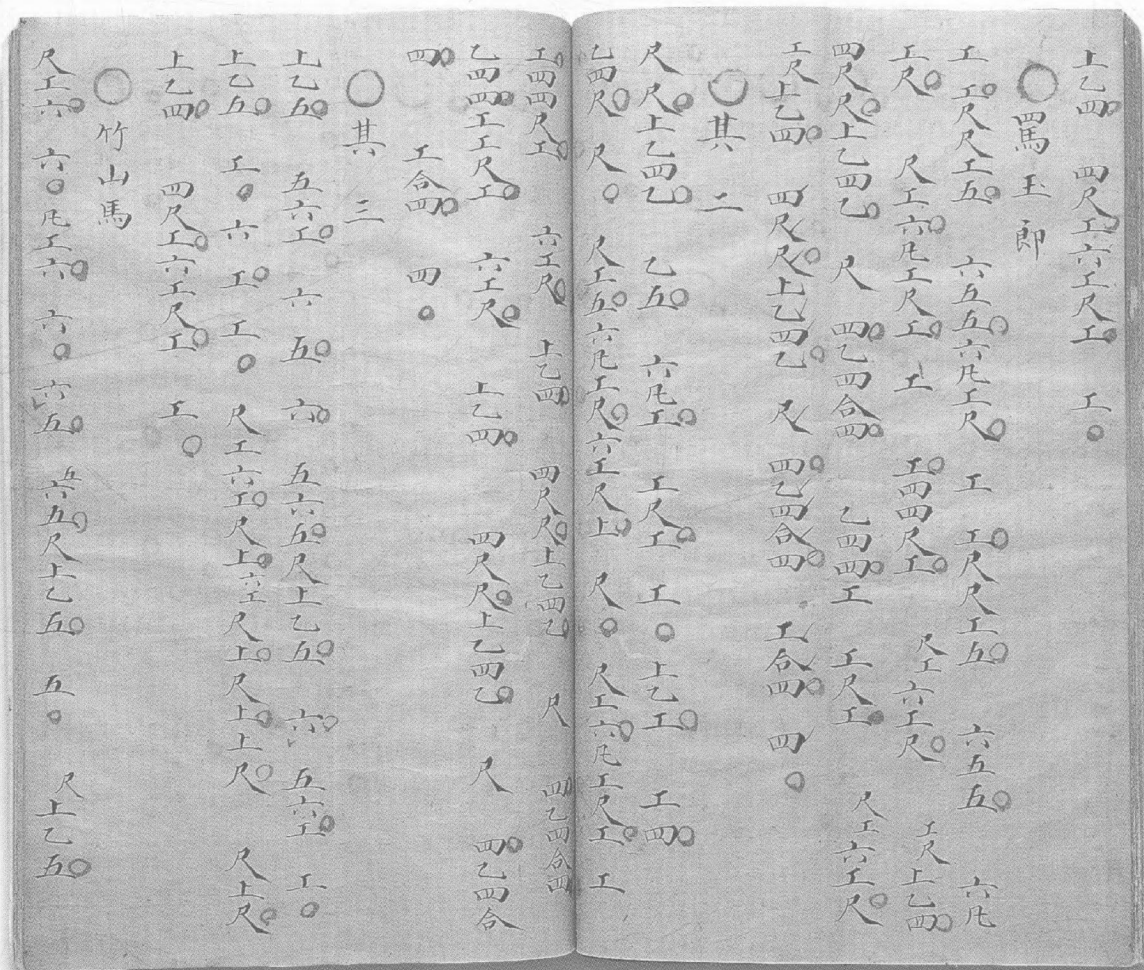 上乙四。 四尺工。六工尺工。 工。
○罵玉郎
工。工尺尺工五。 六五五。六凡工尺。 工 工。尺尺工五。 六五五。 六凡
工尺。 尺工六。凡工尺工。 工 工。四四尺工。 尺工六工尺。 工尺上乙四。
四尺尺。上乙四乙。 尺 四。乙四合四。 乙四四。工 工尺工。 尺工六工尺。
工尺上乙四。 四尺尺。上乙四乙。 尺 四。乙四合四。 工合四。 四。
○其二
尺 尺。上乙四乙。 乙五。 六凡工。 工尺工。 工。 上乙工。 工四。
乙四尺。 尺。 尺工五。六凡工尺。六工尺上。 尺。 尺工六。凡工尺工。 工
工。四四尺工。 六工尺。 上乙四。 四尺尺。上乙四乙。 尺 四。乙四合四。
乙四四。工工尺工。 六工尺。 上乙四。 四尺尺。上乙四乙。 尺 四。乙四合
四。 工合四。 四。
○其三
上乙五。 五六工。 六 五。 六。 五六五。尺上乙五。 六。 五六工。 工。
上乙五。 工。六 工。 工。 尺工六工。尺上。六工尺上。尺上。上尺。 尺上尺。
上乙四。 四尺工。六工尺工。 工。
○竹山馬
尺工六。 六。凡工六。 六。 六五。 五六五。尺上乙五。 五。 尺上乙五。